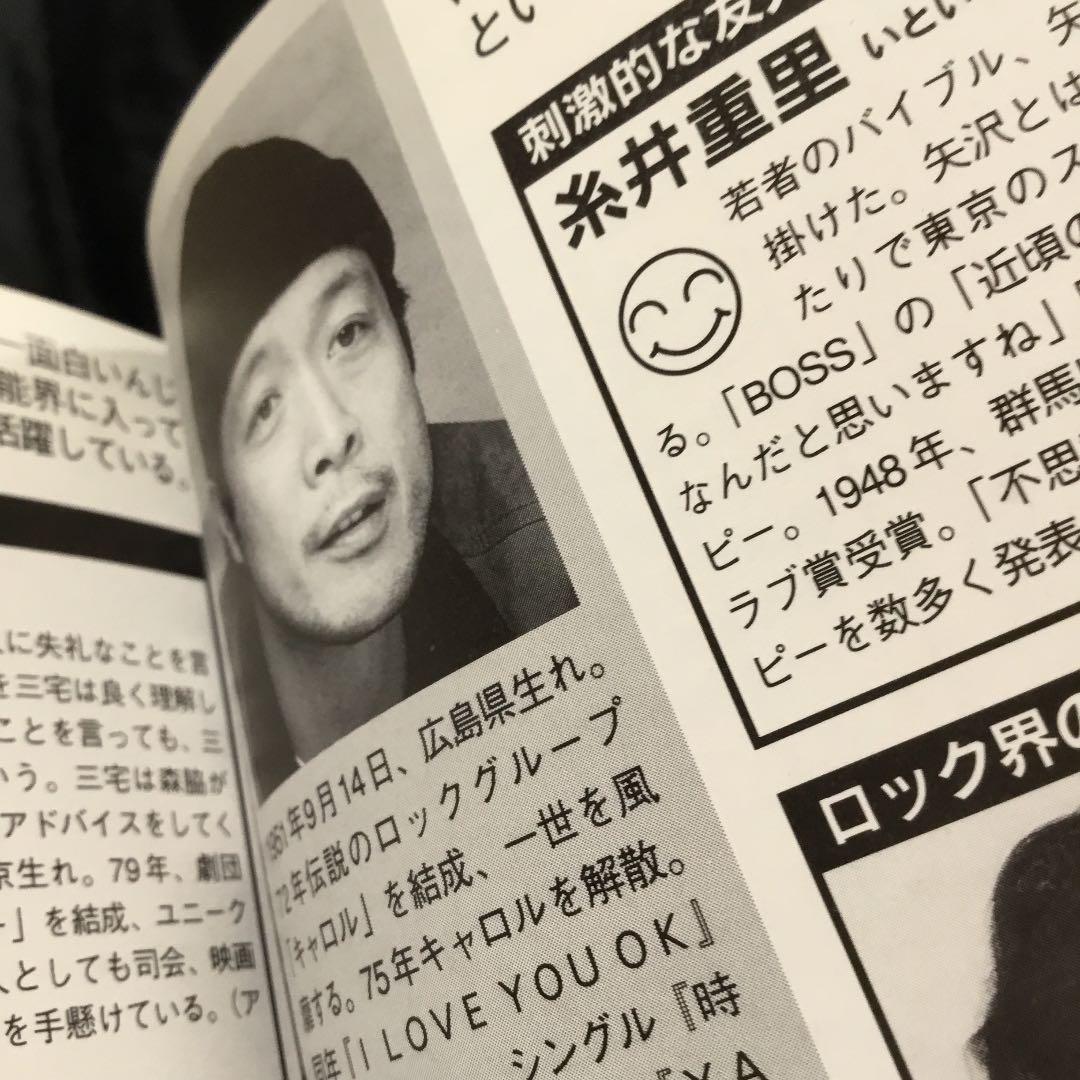 とい
刺激的な友人
糸井重里 いとい
若者のバイブル、矢
掛けた。矢沢とは
たりで東京のス
る。「BOSS」の「近頃の
なんだと思いますね」
ピー。1948年、群馬
ラブ賞受賞。「不思
ピーを数多く発表
ロック界の
1951年9月14日、広島県生れ。
72年伝説のロックグループ
「キャロル」を結成、一世を風
靡する。75年キャロルを解散。
同年『I LOVE YOU OK』
シングル『時
『YA
一面白いんじ
能界に入って
活躍している。
に失礼なことを言
を三宅は良く理解し
ことを言っても、三
いう。三宅は森脇が
アドバイスをしてく
京生れ。79年、劇団
ー」を結成、ユニーク
人としても司会、映画
を手懸けている。(ア